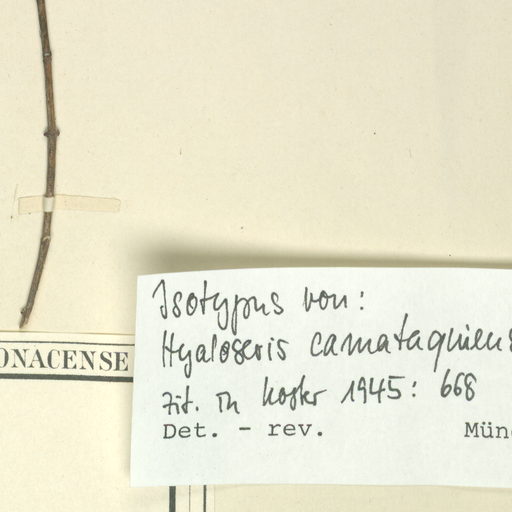 Isotypus von:
Hyaloseris camataquiens
zit. in Koster 1945: 668
Det. - rev. Münc
ONACENSE